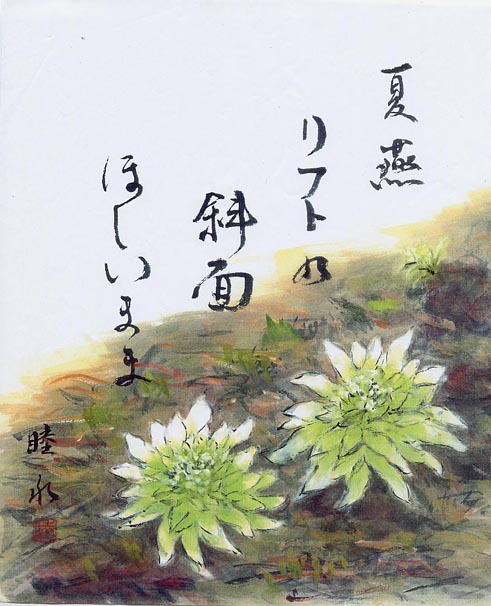 夏燕
リフトの
斜面
ほしいまま
睦永